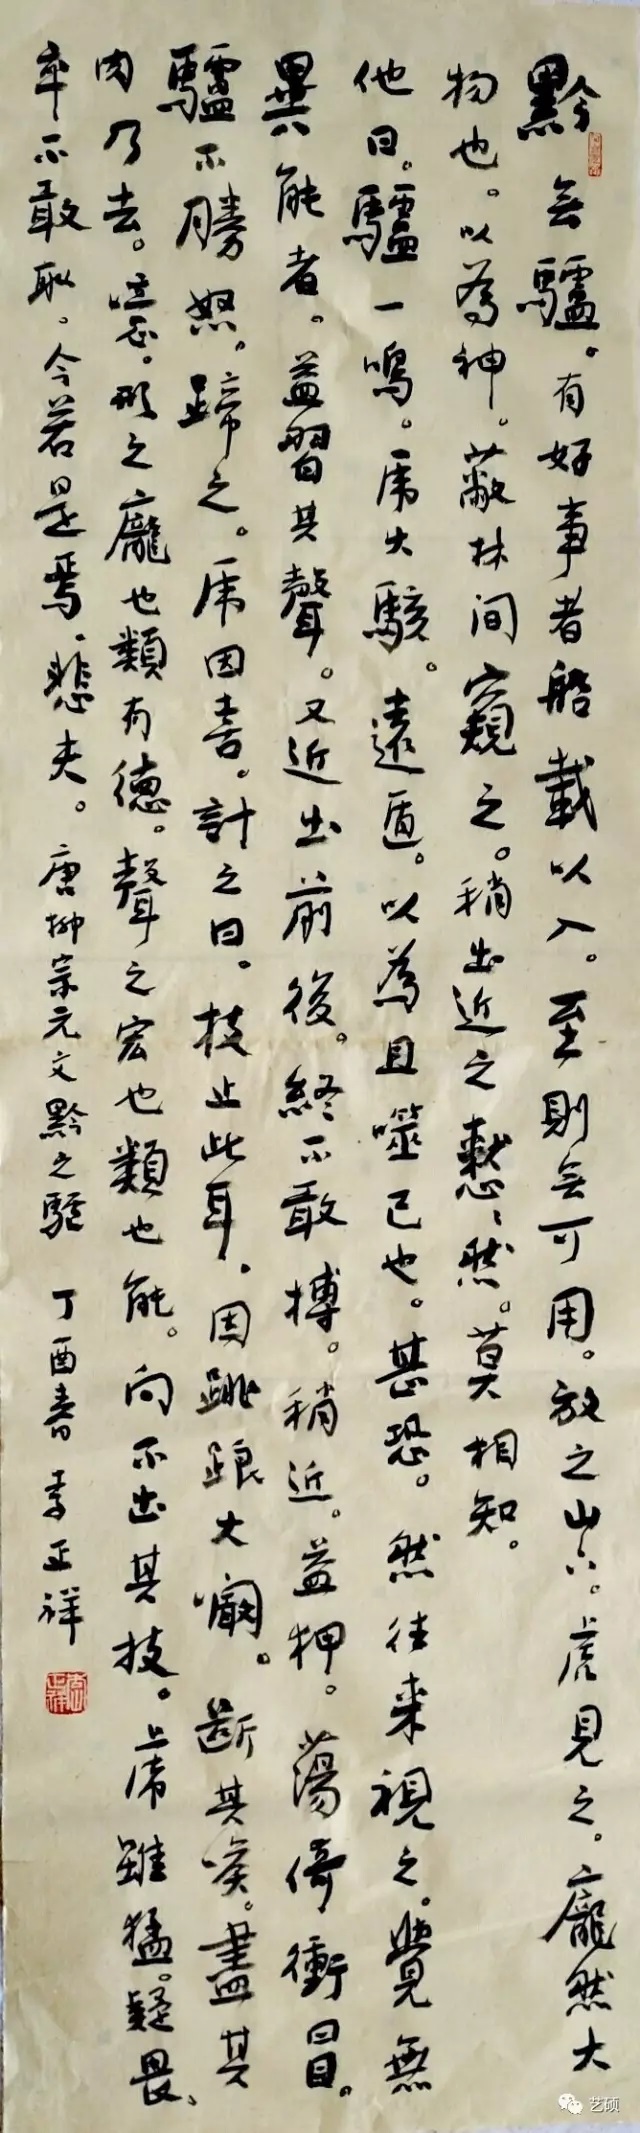 黔無驢。有好事者船載以入。至則無可用。放之山下。虎見之。龐然大
物也。以為神。蔽林间窺之。稍出近之憖憖然。莫相知。
他日。驢一鳴。虎大駭。遠遁。以為且噬己也。甚恐。然往来視之。覺無
異能者。益習其聲。又近出前後。終不敢搏。稍近。益狎。蕩倚衝冒。
驢不勝怒。蹄之。虎因喜。計之曰。技止此耳。因跳踉大㘚。斷其喉。盡其
肉乃去。噫。形之龐也類有德。聲之宏也類有能。向不出其技。虎雖猛。疑畏、
卒不敢取。今若是焉、悲夫。唐柳宗元文黔之驢 丁酉春 李正祥
艺硕